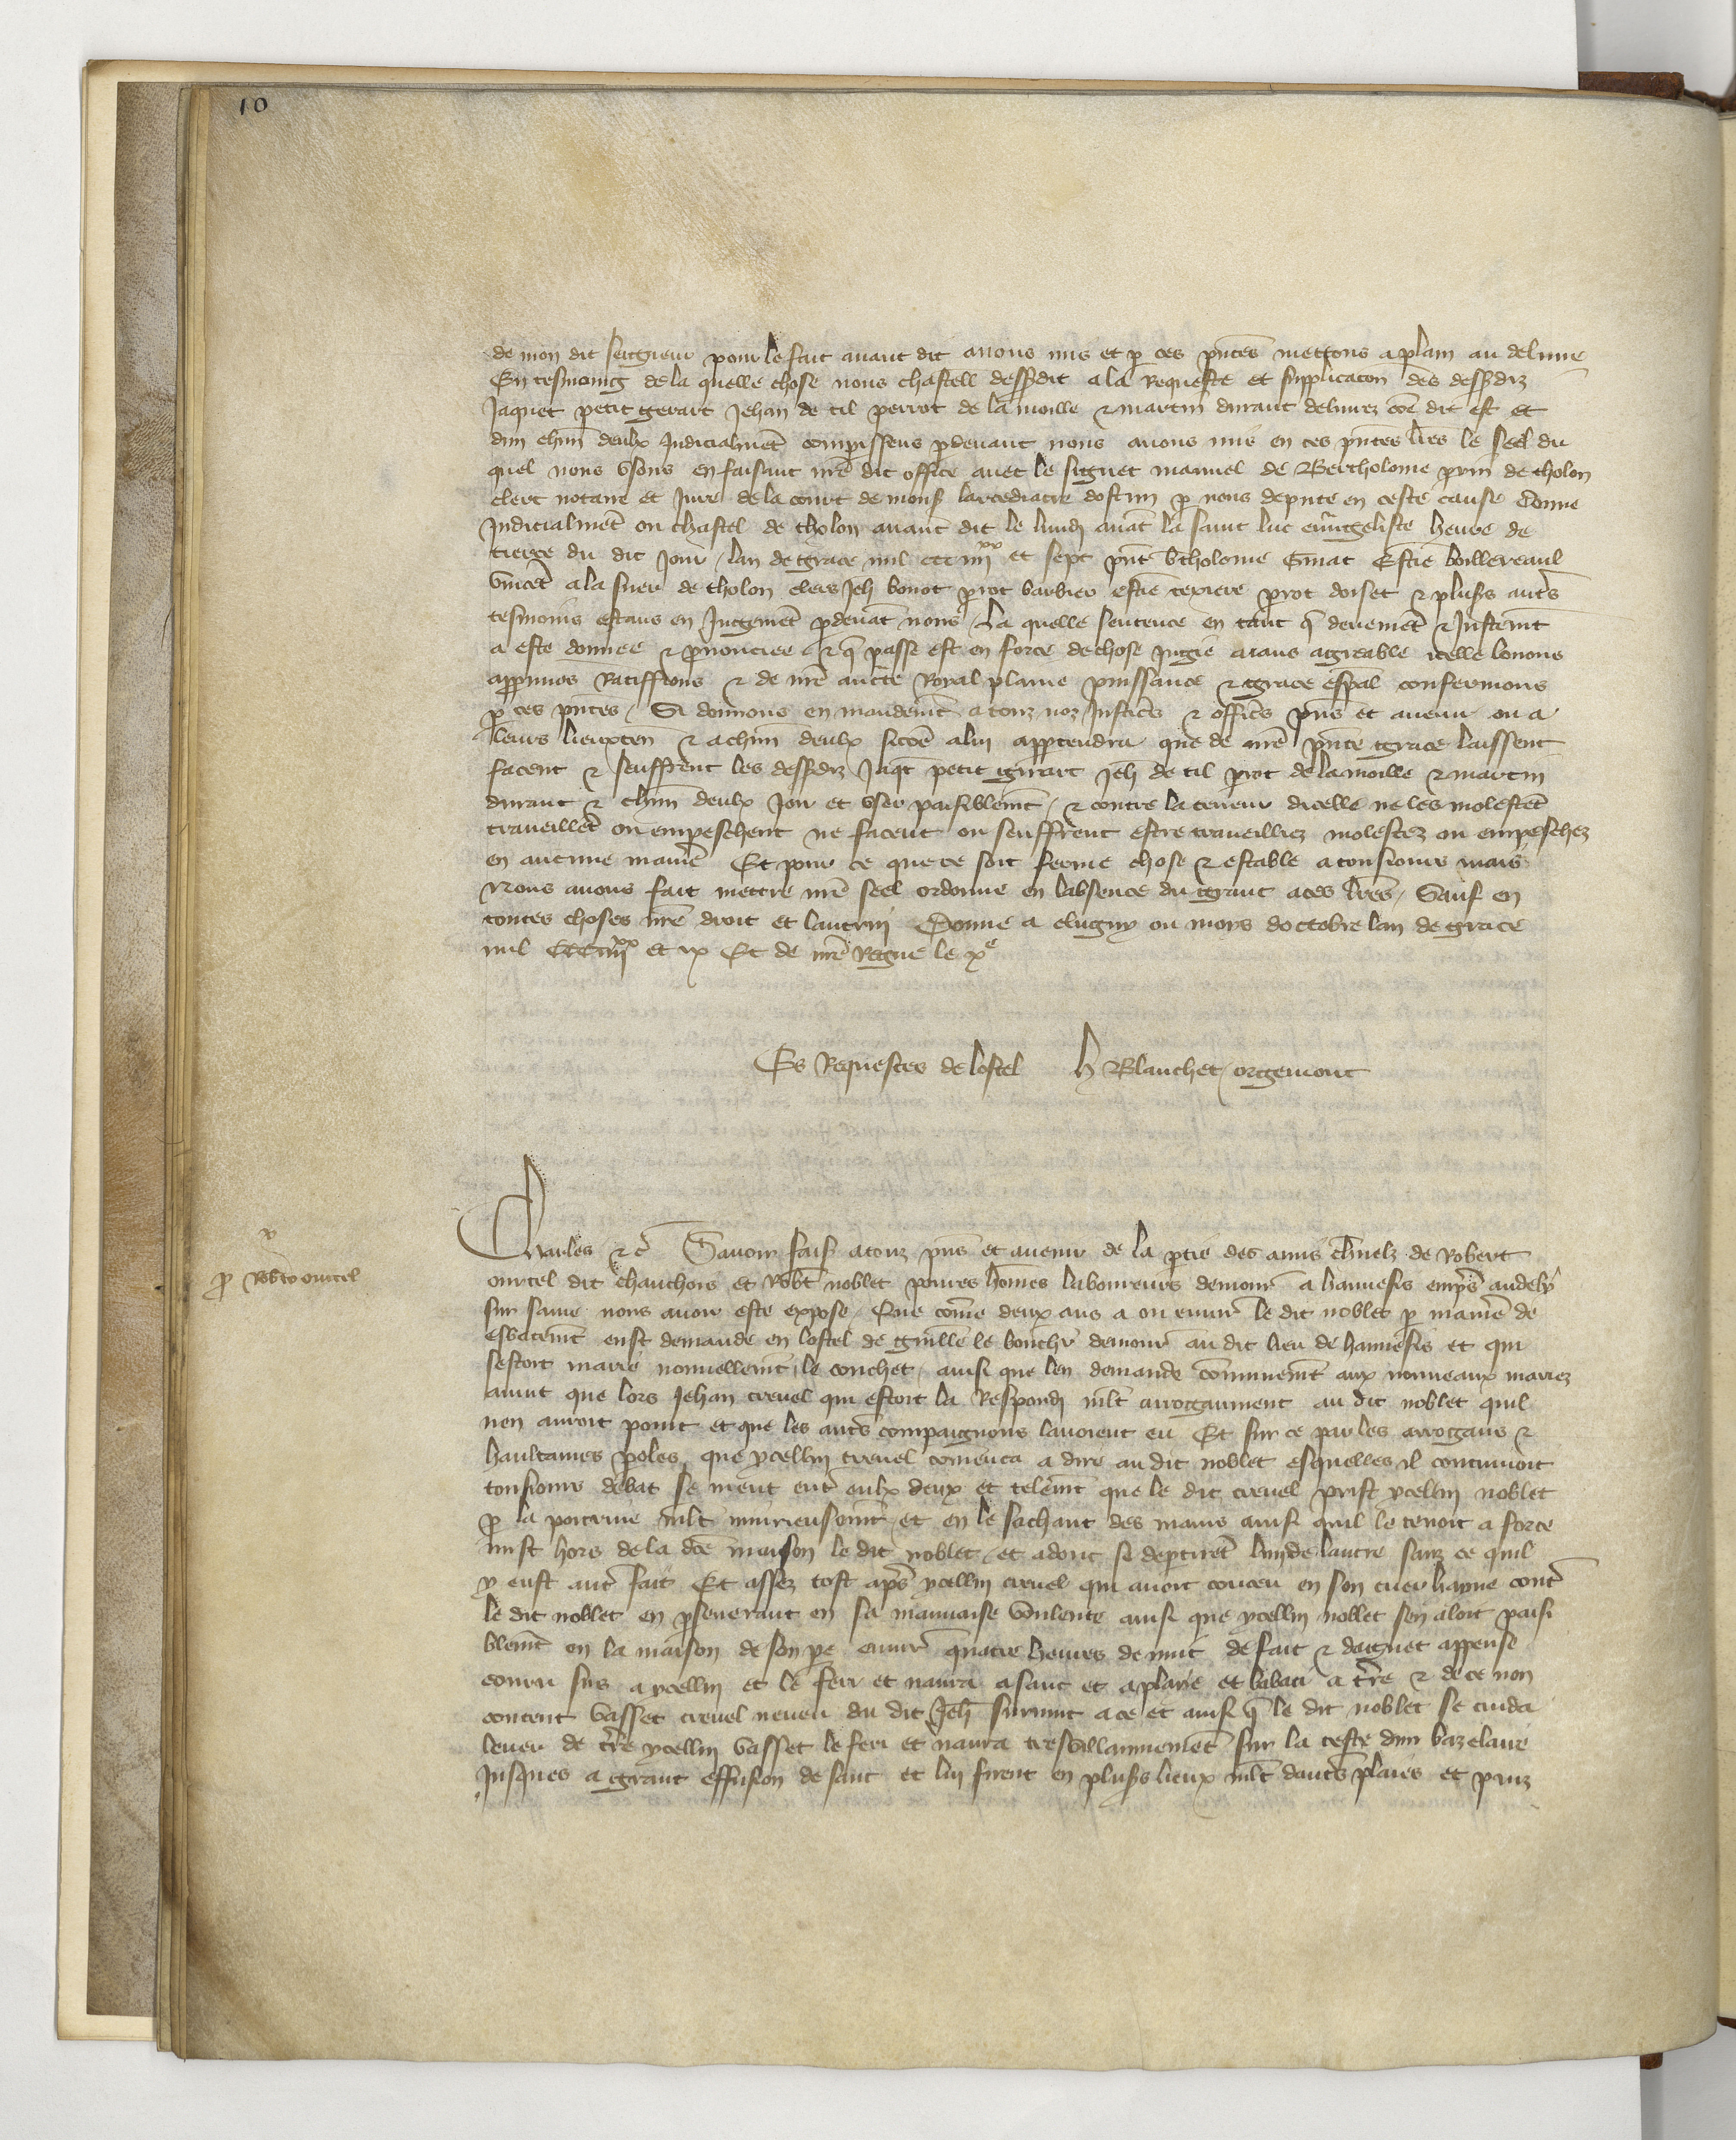 10
de mon dit seigneur pour le fait avant dit avons mis et p ces pntes mettons a plain au delivre
En tesmoing de la quelle chose nous chastell dessusdit a la Requeste et supplicacon des dessusdiz
Jaquet petit gerart Jehan de til perrot de la moille & martin durant delivrez coe dit est et
dun chun deulx Judicialmet comparissens p devant nous avons mis en ces pntes lres le seel du
quel nous usons en faisant nre dit office avec le signet manuel de Bertholome prin de tholon
clerc notaire et Jure de la court de mons larcediacre dostun p nous depute en ceste cause Donne
Judicialmet ou chastel de tholon avant dit le lundi avat la saint luc euvngeliste heure de
tierce du dit Jour / lan de grace mil ccc iiii xx et sept pnt btholome Estie boillereaul
vincet a la suer de tholon clers Jeh bonot prot barbier estie texiere prot doiset & plus autes
tesmoins estans en Jugemet p devat nous / La quelle sentence en tant q deuemet & Justemt
a este donnee & prononciee & q passe est en force de chose Jugie aians agreable icelle louons
approuvos Ratiffions & de nre aucte Royal plaine puissance & grace espal confermons
p ces pntes / Si donnons en mandemt a touz noz Justices & offices pns et avenir ou a
leurs lieuxten & a chun deulx sicoe a lui appartendra que de nre pnte grace laissent
facent & seuffrent les dessusdiz Jaqt petit girart Jeh de til prot de la moille & martin
durant & chun deulx Joir et user paisiblemt / & contre la teneur dicelle ne les molestet
traveillet ou empeschent ne facent ou seuffrent estre traveilliez molestez ou empeschez
en aucune manie Et pour ce que ce soit ferme chose & estable a tousiours mais
Nous avons fait mettre nre seel ordonne en labsence du grant a ces lres / Sauf en
toutes choses nre droit et lautrui Donne a clugny ou moys doctobre lan de grace
mil CCC iiii xx et ix Et de nre Regne le x e
Es Requestes de lostel h Blanchet / orgemont
p Robto ourcel
Charles &c Savoir fais a touz pns et avenir de la ptie des amis chnelz de Robert
ourcel dit chauchois et Robt noblet povres homes laboureurs demour a hanuesis empS andely
sur saine nous avoir este expose / Que come deux ans a ou envir le dit noblet p manie de
esbatemt eust demande en lostel de guille le bouchr demour au dit lieu de hanuesis et qui
sestoit marie nouvellemt le couchet / ainsi que len demande communemt aux nouveaux mariez
avint que lors Jehan crevel qui estoit la Respondi mlt arrogaument au dit noblet quil
nen auroit point et que les autes compaignons lavoient eu Et sur ce par les arrogans &
haultaines proles que ycellui crevel comenca a dire au dit noblet esquelles il continuoit
tousiours debat se meut ent eulx deux et telemt que le dit crevel prist ycellui noblet
p la poitrine mlt iniurieusemt et en le sachant des mains ainsi quil le tenoit a force
mist hors de la dce maison le dit noblet / et adonc se deptiret lun de lautre sanz ce quil
y eust aut fait Et assez tost aps ycellui crevel qui avoit conceu en son cuer hayne cont
le dit noblet en pseverant en sa mauvaise voulente ainsi que ycellui noblet sen aloit paisi
blemt en la maison de son pe envir quatre heures de nuit de fait & daguet appense
couru sus a ycellui et le feri et navra a sanc et a plaie et labati a tre & de ce non
content vasset crevel neveu du dit Jeh survint a ce et ainsi q le dit noblet se cuida
lever de tre ycellui vasset le feri et navra tresvillainnemet sur la teste dun bazelaire
Jusques a grant effusion de sanc et lui firent en plus lieux mlt dautes plaies et puiz